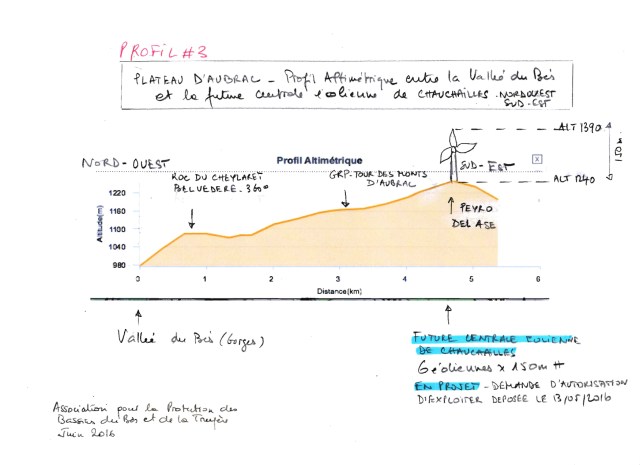 PROFIL #3
PLATEAU D'AUBRAC - Profil Altimétrique entre la Vallée du Bès
et la future centrale éolienne de CHAUCHAILLES - NORD OUEST
SUD-EST
ALT 1390
150 m
NORD-OUEST
Profil Altimétrique
SUD-EST
x
ROC DU CHEYLARET
BELVEDERE-360°
GRP-TOUR DES MONTS
D'AUBRAC
ALT 1240
Altitude(m)
1220
1160
1100
1040
980
PEYRO
DEL ASE
0 1 2 3 4 5 6
Distance(km)
Vallée du Bès (Gorges)
FUTURE CENTRALE EOLIENNE
DE CHAUCHAILLES
6 éoliennes x 150m H
EN PROJET - DEMANDE D'AUTORISATION
D'EXPLOITER DEPOSEE LE 13/05/2016
Association pour la Protection des
Bassins du Bès et de la Truyère
Juin 2016